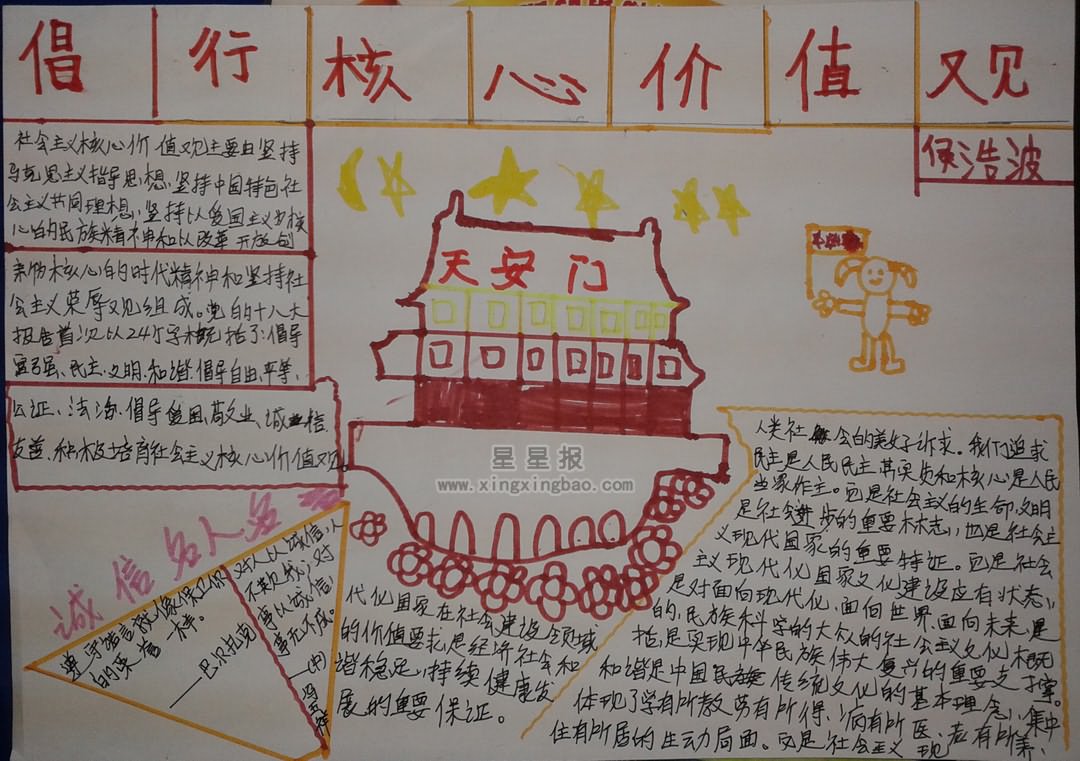 倡行核心价值观
侯浩波
社会主义核心价值观主要由坚持
马克思主义指导思想、坚持中国特色社
会主义共同理想、坚持以爱国主义为核
心的民族精神和以改革开放创
新为核心的时代精神和坚持社
会主义荣辱观组成。党的十八大
报告首次以24个字概括了:倡导
富强、民主、文明、和谐、倡导自由、平等、
公证、法治、倡导爱国、敬业、诚信、
友善、积极培育社会主义核心价值观。
天安门
星星报
www.xingxingbao.com
诚信名人名言
遵守诺言就像保卫你
的荣誉一样。
——巴尔扎克
对人以诚信,人
不欺我;对
事以诚信,
事无不成。
人类社会的美好诉求。我们追求
民主是人民民主,其实质和核心是人民
当家作主。它是社会主义的生命,文明
是社会进步的重要标志,也是社会主
义现代国家的重要特征。它是社会
主义现代化国家文化建设应有状态,
是对面向现代化,面向世界,面向未来,是
的,民族科学的大众的社会主义文化概
括,是实现中华民族伟大复兴的重要支撑。
和谐是中国民族传统文化的基本理念,集中
体现了学有所教、劳有所得、病有所医、老有所养、
住有所居的生动局面。它是社会主义现
代化国家在社会建设领域
的价值要求,是经济社会和
谐稳定,持续健康发
展的重要保证。